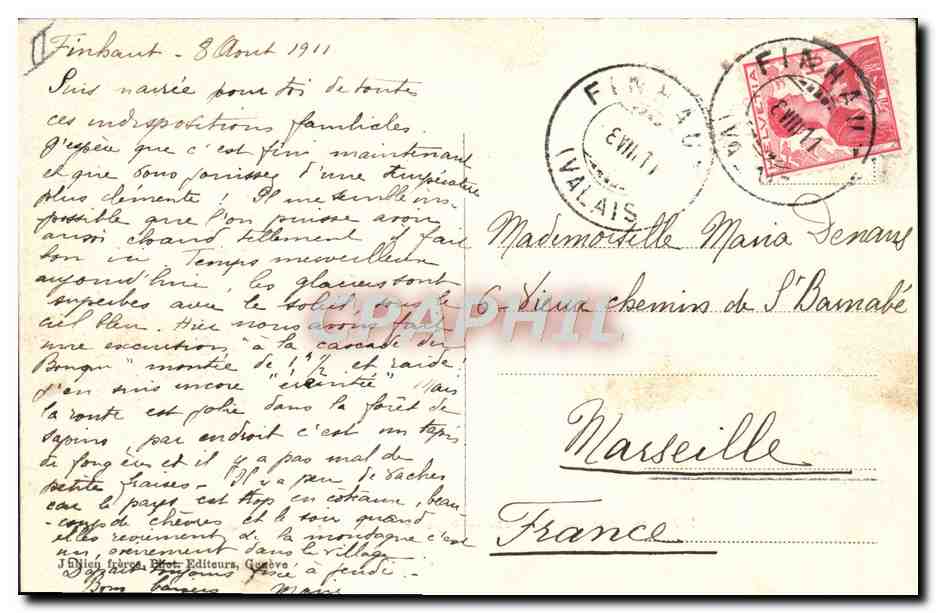 Finhaut - 8 Aout 1911
Suis navrée pour toi de toutes
ces indispositions familiales.
J'espère que c'est fini maintenant
et que vous jouissez d'une température
plus clémente ! Il me semble im-
possible que l'on puisse avoir
aussi chaud tellement il fait
bon ici. Temps merveilleux
aujourd'hui, les glaciers sont
superbes avec le soleil, sous le
ciel bleu. Hier nous avons fait
une excursion "à la cascade du
Bouqui" montée de 1h 1/2 et raide !
j'en suis encore "éreintée" Mais
la route est jolie dans la forêt de
sapins, par endroit c'est un tapis
de fougères et il y a pas mal de
petites fraises - Il y a peu de vaches
car le pays est trop en côteaux, beau-
-coup de chèvres et le soir quand
elles reviennent de la montagne c'est
un évènement dans le village
Julien frères, Phot. Editeurs, Genève
Départ toujours fixé à jeudi -
Bons baisers Marie
FINHAUT
8 VIII 11
(VALAIS)
FINHAUT
8 VIII 11
(VALAIS)
HELVETIA
Mademoiselle Maria Denans
6 Vieux chemins de St Barnabé
Marseille
France
CPAPHIL